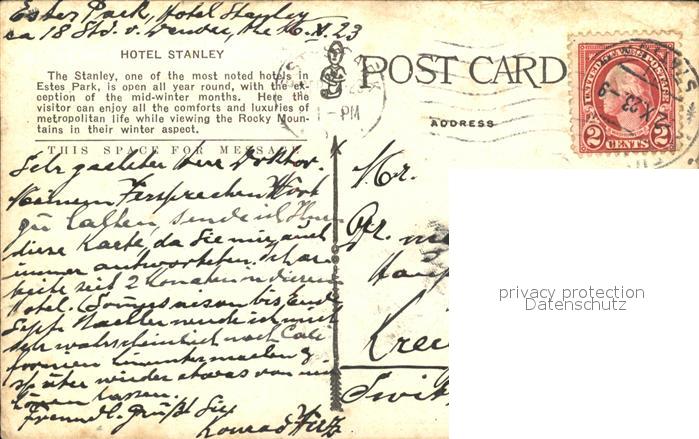 Estes Park, Hotel Stanley
ca 18 Std. v. Denver, the 16. XI. 23
HOTEL STANLEY
The Stanley, one of the most noted hotels in
Estes Park, is open all year round, with the ex-
ception of the mid-winter months. Here the
visitor can enjoy all the comforts and luxuries of
metropolitan life while viewing the Rocky Moun-
tains in their winter aspect.
THIS SPACE FOR MESSAGE
POST CARD
ADDRESS
1-PM
2 CENTS 2
Sehr geehrter Herr Doktor.
Meinem Versprechen Wort
zu halten, sende ich Ihnen
diese Karte, da Sie mir auch
immer antworteten. Ich ar-
beite seit 2 Monaten in diesem
Hotel. (Somersaison bis Ende
Sept. Nachher werde ich mich
sehr wahrscheinlich nach Cali
fornien hinuntermachen &
später wieder etwas von mir
hören lassen.
Freundl. grüßt Sie
Konrad
Mr.
Dr.
Switz
privacy protection
Datenschutz